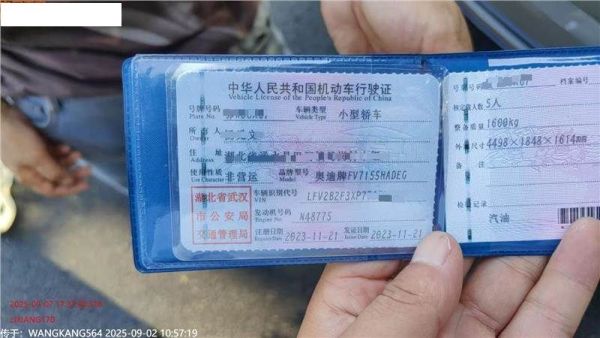 中华人民共和国机动车行驶证
Vehicle License of the People's Republic of China
号牌号码
Plate No.
车辆类型
Vehicle Type
小型轿车
所有人
文
Owner
住 址
Address
使用性质
Use Character
非营运
品牌型号
Model
奥迪牌FV7155HADEG
湖北省武汉
市公安局
交通管理局
车辆识别代号
VIN
LFV2B2F3XP7
发动机号码
Engine No.
N48775
注册日期
Register Date
2023-11-21
发证日期
Issue Date
2023-11-21
档案编号
核定载人数 5人
整备质量 1600kg
外廓尺寸 4498×1848×1614mm
检验记录
汽油
传于：WANGKANG564 2025-09-02 10:57:19